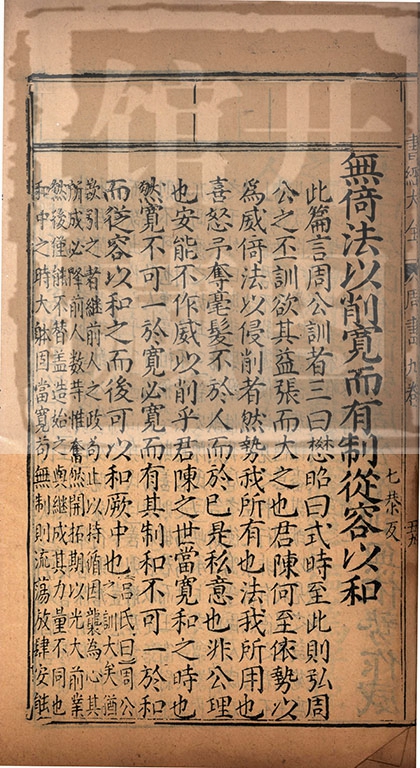 書經大全 周書九卷
無倚法以削寬而有制從容以和
七恭反
此篇言周公訓者三曰懋昭曰式時至此則弘周
公之丕訓欲其益張而大之也君陳何至依勢以
為威倚法以侵削者然勢我所有也法我所用也
喜怒予奪毫髮不於人而於已是私意也非公理
也安能不作威以削乎君陳之世當寬和之時也
然寬不可一於寬必寬而有其制和不可一於和
而從容以和之而後可以和厥中也
呂氏曰周公
之訓大矣猶
欲引之者繼前人之政苟止以持循因襲為心其
所成必降前人數等惟奮然開拓期以光大前業
然後僅能不替盖造始之與繼成其力量不同也
和中之時大躰固當寬苟無制則流蕩放肆安能